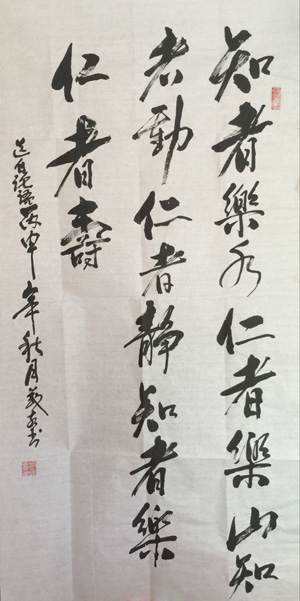 知者樂水仁者樂山知
者動仁者静知者樂
仁者壽
选自论语丙申年秋月義书